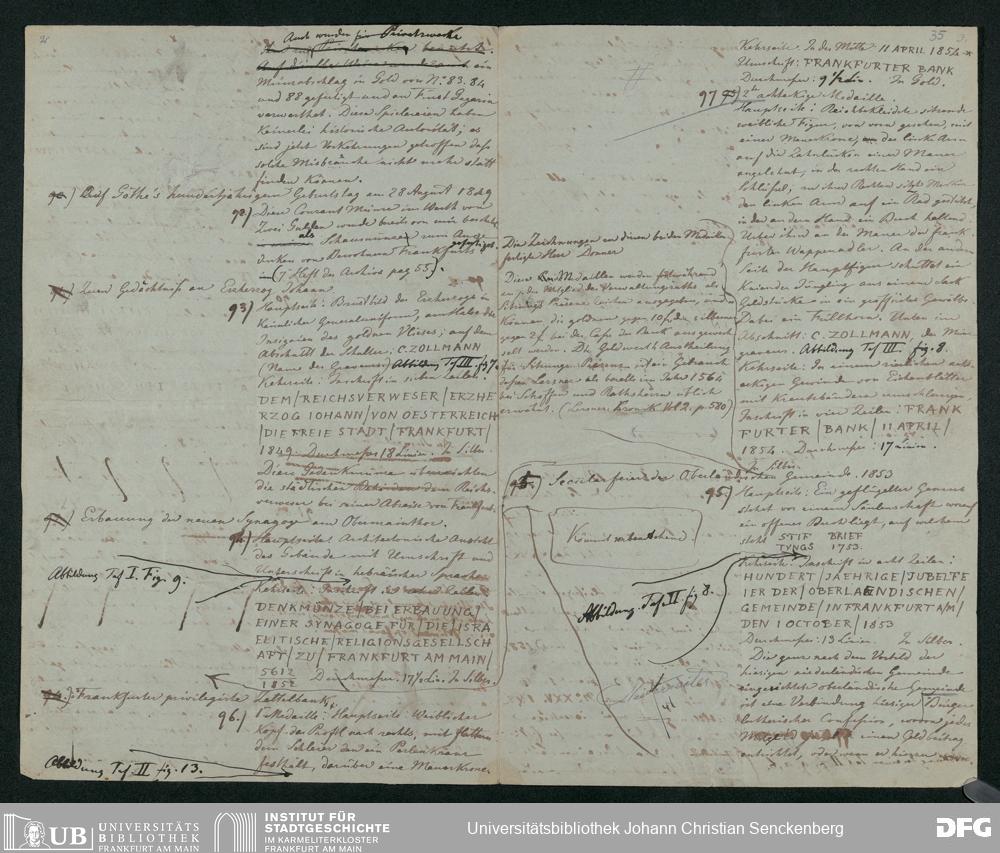 35
Auch wurden für Privatzwecke
Münzabschlag in Gold von No 83. 84
und 88 gefertigt und an Fürst Gagarin
verwerthet. Diese Spielereien haben
keinerlei historische Autorität; es
sind jetzt Vorkehrungen getroffen daß
solche Misbräuche nicht mehr statt
finden können.
Auf Göthe's hundertjährigen Geburtstag am 28 August 1849
92.) Diese Courant Münze im Werth von
Zwei Gulden wurde bereits von mir beschrieben
als Schaumünze zum Ange-
denken von Bewohnern Frankfurts gefertigt.
(7 Heft des Archivs pag 55).
Zum Gedächtniß an Erzherzog Johann.
93) Hauptseite: Brustbild des Erzherzogs in
Kaiserlicher Generaluniform, am Halse die
Insignien des goldnen Vlieses; auf dem
Abschnitt der Schulter: C. ZOLLMANN
(Name des Graveurs) Abbildung Taf III. fig 7.
Kehrseite: Inschrift in sieben Zeilen
DEM / REICHSVERWESER / ERZHE
RZOG IOHANN / VON OESTERREICH
/ DIE FREIE STADT / FRANKFURT /
1849. Durchmesser 18 Linien. In Silber.
Diese Gedenkmünze überreichten
die städtischen Behörden dem Reichs-
verweser bei seiner Abreise von Frankfurt.
Erbauung der neuen Synagoge am Obermainthor.
94.) Hauptseite: Architectonische Ansicht
des Gebäudes mit Umschrift und
Unterschrift in hebräischer Sprache.
Abbildung Taf I. Fig. 9.
Kehrseite: Inschrift
DENKMÜNZE / BEI ERBAUUNG /
EINER SYNAGOGE FÜR / DIE / ISRA
ELITISCHE / RELIGIONSGESELLSCH
AFT / ZU / FRANKFURT AM MAIN /
5612
1852 Durchmesser. 17½ Lin. In Silber.
Frankfurter privilegirte Zettelbank.
96.) 1te Medaille: Hauptseite: Weiblicher
Kopf, das Profil nach rechts, mit flatterndem
Schleier den ein Perlenkranz
festhält, darüber eine Mauerkrone.
Abbildung Taf II fig. 13.
Kehrseite: In der Mitte 11 APRIL 1854
Umschrift: FRANKFURTER BANK
Durchmesser: 9½ Lin. In Gold.
97) 2te achteckige Medaille.
Hauptseite: Reichbekleidete sitzende
weibliche Figur, von vorn gesehen, mit
einer Mauerkrone, der linke Arm
auf die Zahnlücken einer Mauer
angelehnt, in der rechten Hand ein
Schlüssel, zu ihrer Rechten sitzt Merkur
den linken Arm auf ein Rad gestützt,
in der andern Hand ein Buch haltend.
Unter ihm an der Mauer der Frank-
furter Wappenadler. An der andern
Seite der Hauptfigur schüttet ein
knieender Jüngling aus einem Sack
Geldstücke in ein geöffnetes Gewölbe.
Dabei ein Füllhorn. Unten im
Abschnitt: C. ZOLLMANN, der Münz-
graveur. Abbildung Taf III. fig. 8.
Kehrseite: In einem zierlichen acht-
eckigen Gewinde von Eichenblätter
mit Kreuzbändern umschlungen
Inschrift in vier Zeilen: FRANK
FURTER / BANK / 11 APRIL /
1854. Durchmesser: 17 Linien.
In Silber.
Die Zeichnungen zu diesen beiden Medaillen
fertigte Herr Donner
Diese Medaillen werden
an die Mitglieder des Verwaltungsraths als
Sitzungs Präsenz Zeichen ausgegeben, und
können die goldnen gegen 10 f, die silbernen
gegen 2 f bei der Casse der Bank ausgewechselt
werden. Die Geldwerth Austheilung
für Sitzungs Präsenz ist ein Gebrauch
dessen Lersner als bereits im Jahre 1564
bei Schöffen und Rathsherrn üblich
erwähnt. (Lersner Chronik Vol 2. p. 580)
Secularfeier der Oberländischen Gemeinde. 1853
95.) Hauptseite: Ein geflügelter Genius
stehet vor einem Säulenschaft worauf
ein offenes Buch liegt, auf welchem
steht STIF BRIEF
TUNGS 1753.
Kehrseite: Inschrift in acht Zeilen:
HUNDERT / JAEHRIGE / JUBELFE
IER DER / OBERLAENDISCHEN /
GEMEINDE / IN FRANKFURT A/M /
DEN 1 OCTOBER / 1853
Durchmesser: 13 Linien. In Silber.
Abbildung. Taf. II fig 8.
Die ganz nach dem Vorbild der
hiesigen niederländischen Gemeinde
eingerichtete oberländische Gemeinde
ist eine Verbindung hiesiger Bürger
lutherischer Confession, wovon jedes
Mitglied einen Geldbeitrag
entrichtet,
UB UNIVERSITÄTS
BIBLIOTHEK
FRANKFURT AM MAIN
INSTITUT FÜR
STADTGESCHICHTE
IM KARMELITERKLOSTER
FRANKFURT AM MAIN
Universitätsbibliothek Johann Christian Senckenberg
DFG